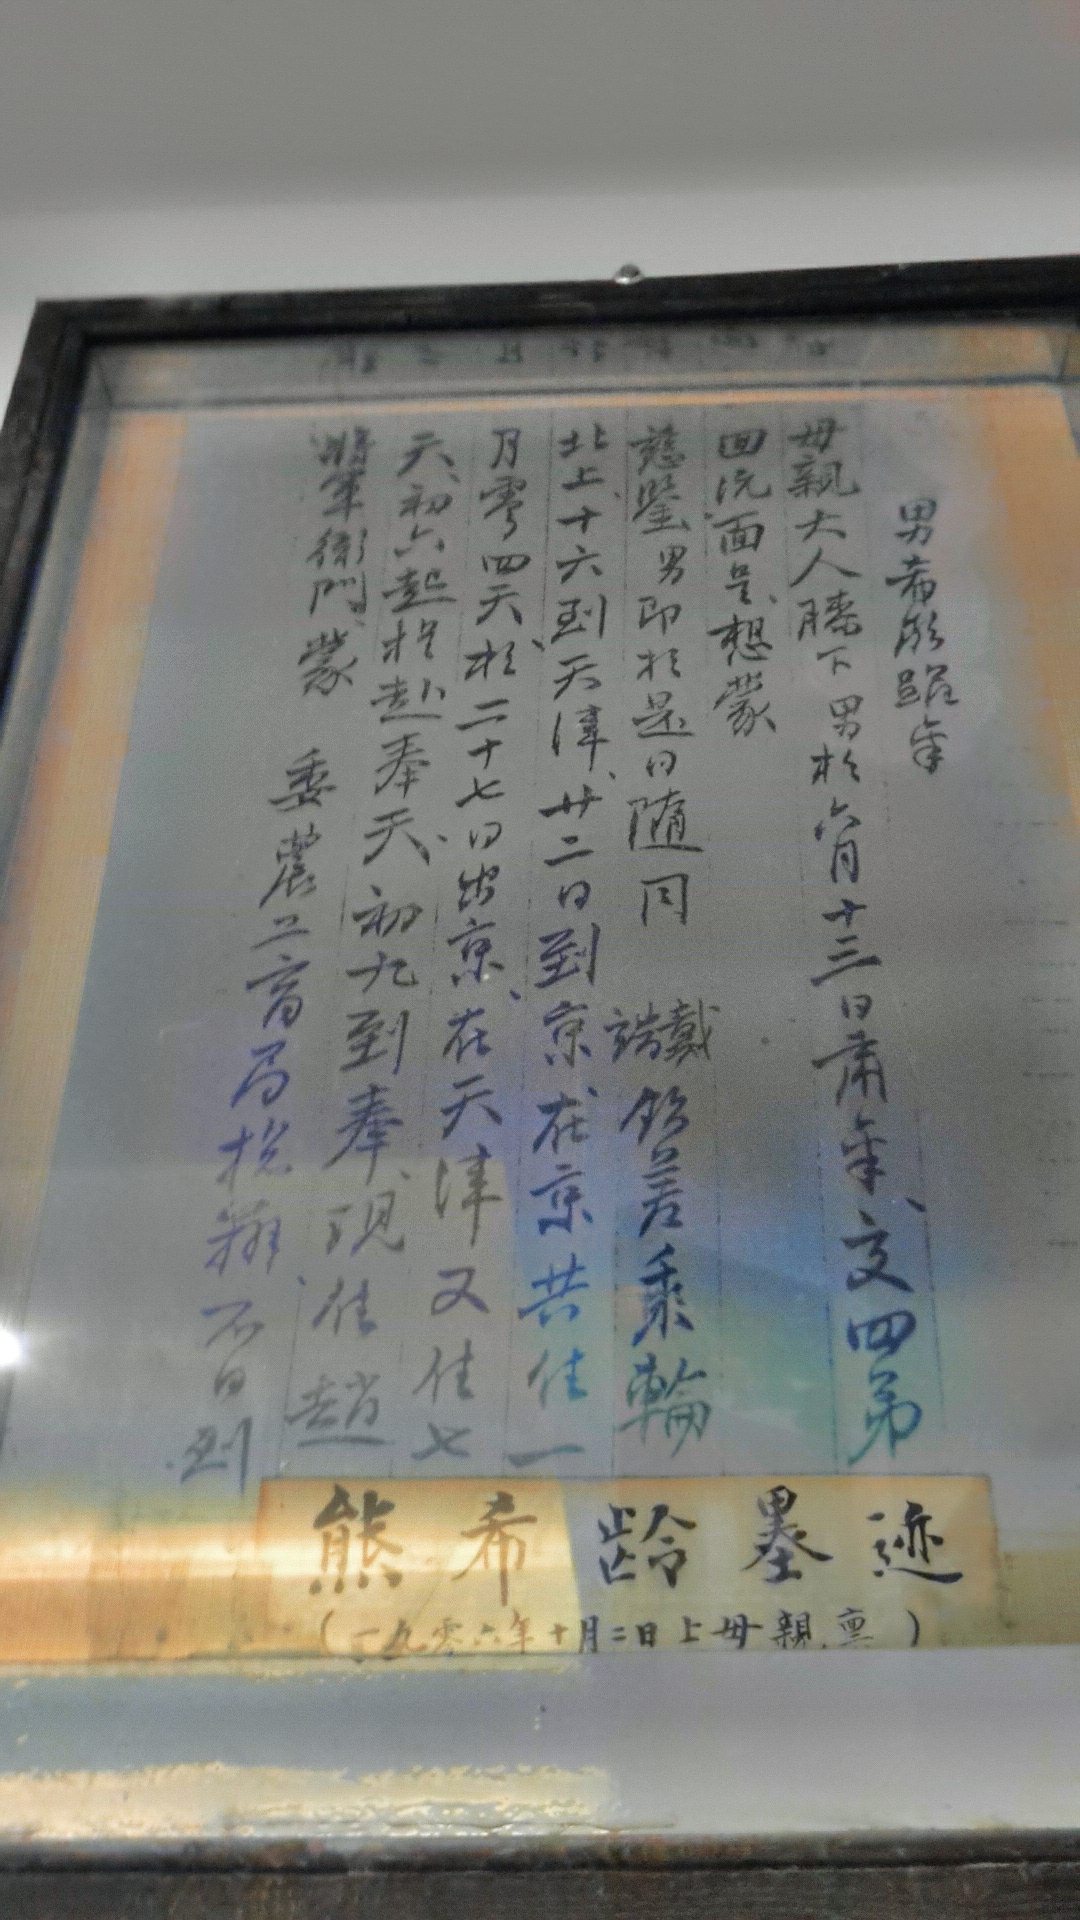 男希齡跪稟
母親大人膝下男於六月十三日肅稟、交四弟
回沅面呈、想蒙
慈鑒男即於是日隨同 戴 端 欽差乘輪
北上、十六到天津、廿二日到京、在京共住一
月零四天、於二十七日出京、在天津又住七
天、初六起程赴奉天、初九到奉、現住趙
將軍衙門、蒙 委農工商局総辦、不日到
熊希齡墨迹
(一九零六年十月二日上母親稟)